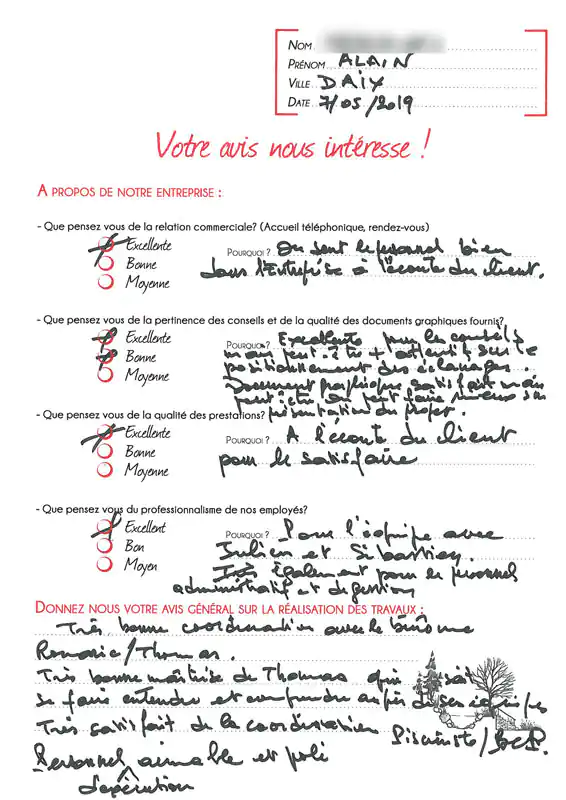 NOM
PRÉNOM ALAIN
VILLE DAIX
DATE 7/05/2019
Votre avis nous intéresse !
A PROPOS DE NOTRE ENTREPRISE :
- Que pensez vous de la relation commerciale? (Accueil téléphonique, rendez-vous)
Excellente
Bonne
Moyenne
POURQUOI ? On sent le personnel bien
dans l'Entreprise à l'écoute du client.
- Que pensez vous de la pertinence des conseils et de la qualité des documents graphiques fournis?
Excellente
Bonne
Moyenne
POURQUOI ? Excellente pour les conseils
mais peut-être + attentif sur le
positionnement des éclairages.
Document graphique satisfait mais
peut être on peut faire mieux sur
présentation du projet.
- Que pensez vous de la qualité des prestations?
Excellente
Bonne
Moyenne
POURQUOI ? A l'écoute du client
pour le satisfaire
- Que pensez vous du professionnalisme de nos employés?
Excellent
Bon
Moyen
POURQUOI ? Pour l'équipe avec
Julien et Sébastien.
également pour le personnel
administratif et de gestion
DONNEZ NOUS VOTRE AVIS GÉNÉRAL SUR LA RÉALISATION DES TRAVAUX :
Très bonne coordination avec le binôme
Romaric/Thomas.
Très bonne maîtrise de Thomas qui
se faire entendre et comprendre auprès de ses équipes
Très satisfait de la coordination Pisciniste/
Personnel aimable et poli
d'exécution